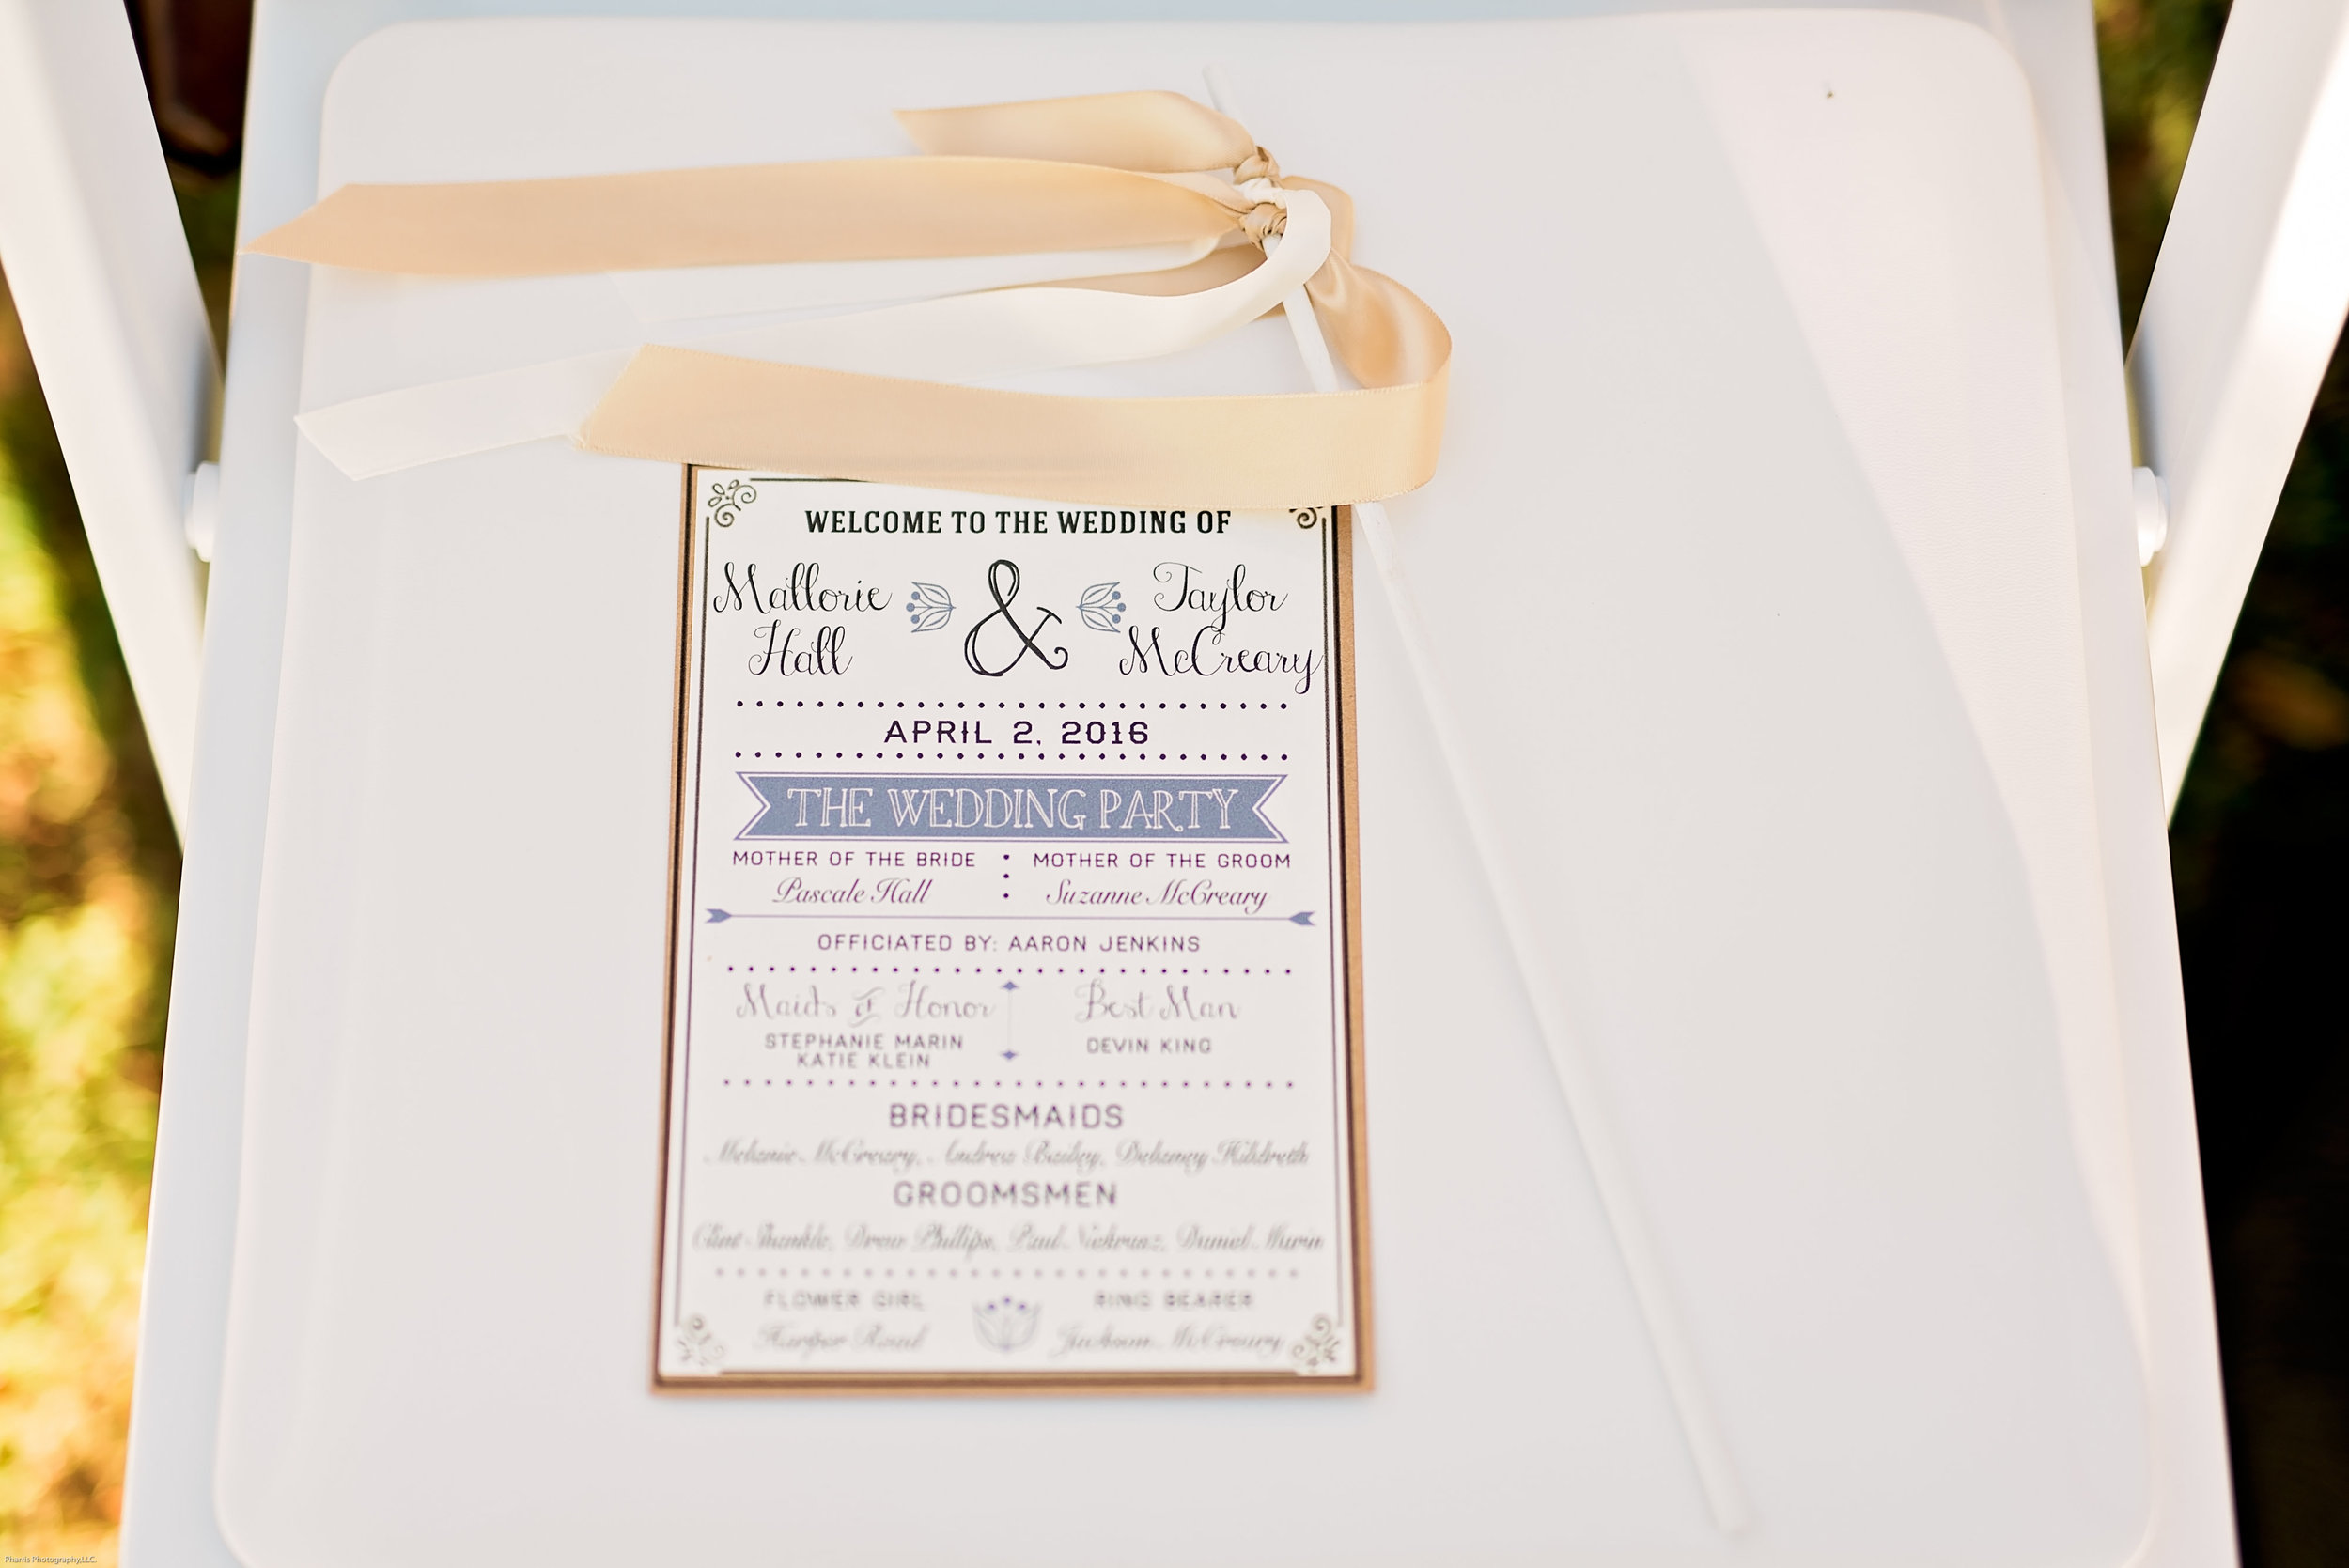 WELCOME TO THE WEDDING OF
Mallorie Hall & Taylor McCreary
APRIL 2, 2016
THE WEDDING PARTY
MOTHER OF THE BRIDE
Pascale Hall
MOTHER OF THE GROOM
Suzanne McCreary
OFFICIATED BY: AARON JENKINS
Maids of Honor
STEPHANIE MARIN
KATIE KLEIN
Best Man
DEVIN KING
BRIDESMAIDS
Melanie McCreary, Andrea Bailey, Delaney Hildreth
GROOMSMEN
Clint Drew Phillips, Paul Daniel Marin
FLOWER GIRL
Harper
RING BEARER
Jackson McCreary
Pharris Photography,LLC.